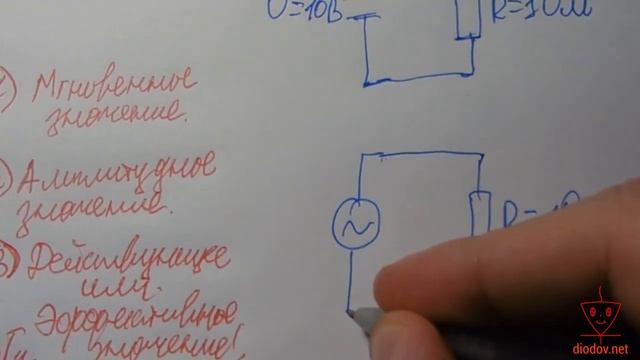 U=10В
R=1Ом
Мгновенное
значение.
Амплитудное
значение.
3) Действующее
или
Эффективное
значение!
diodov.net